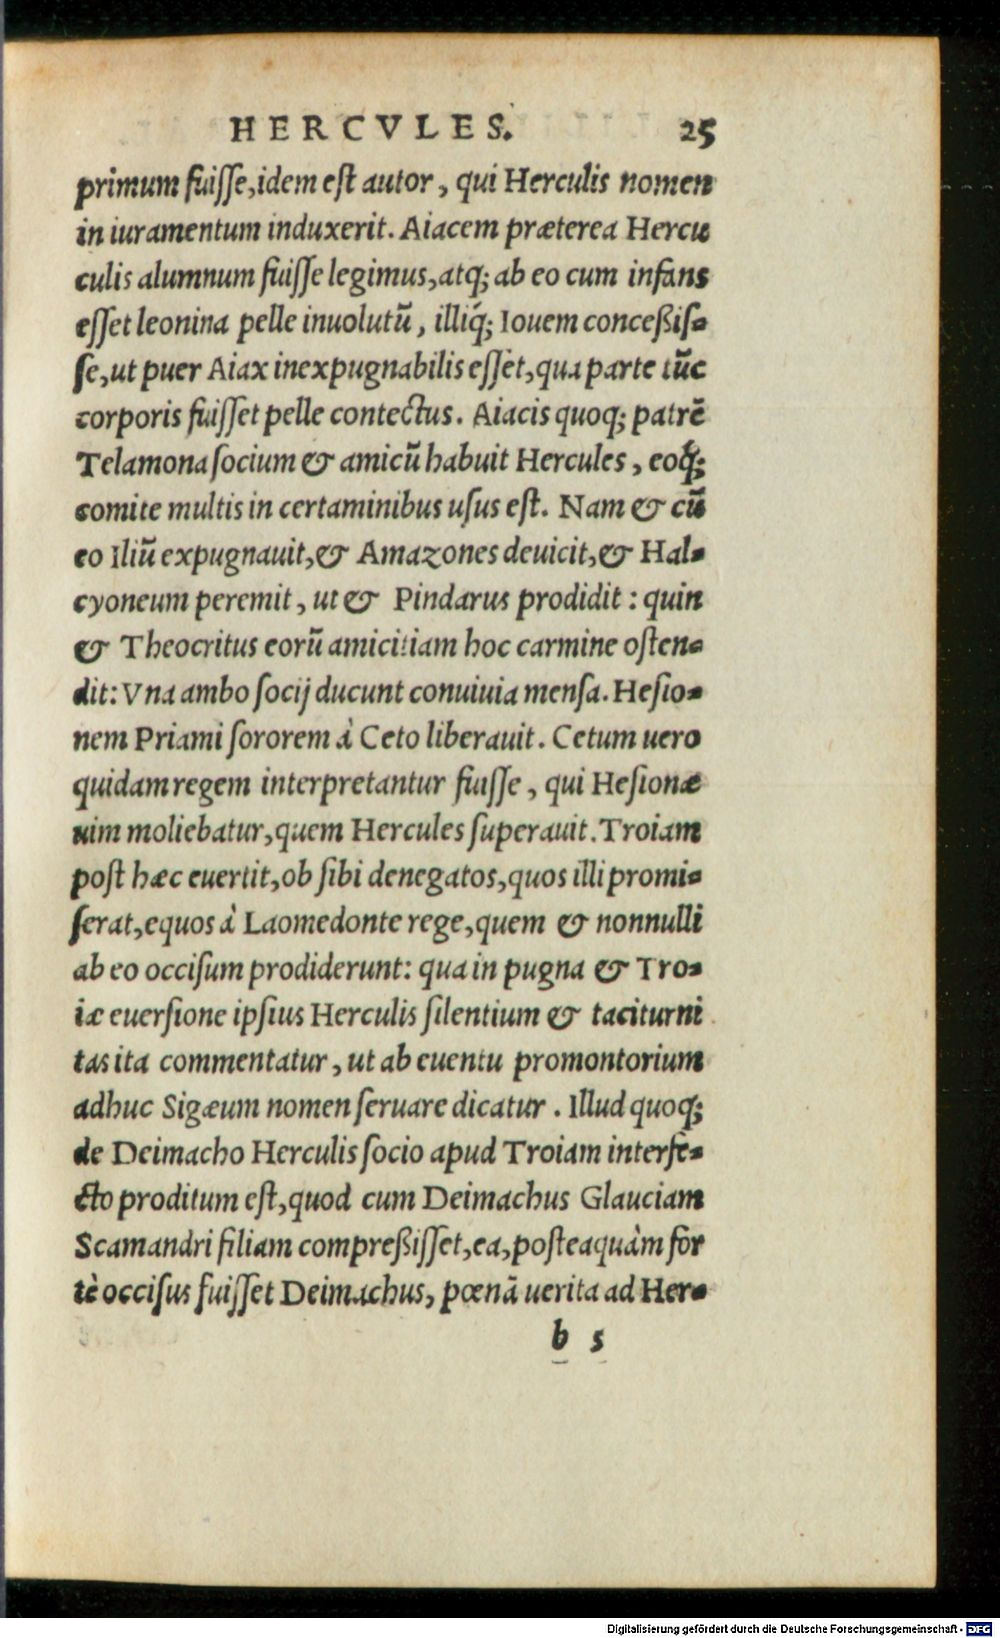 HERCVLES. 25
primum fuisse, idem est autor, qui Herculis nomen
in iuramentum induxerit. Aiacem præterea Hercu
culis alumnum fuisse legimus, atq; ab eo cum infans
esset leonina pelle inuolutũ, illiq́; Iouem conceßis-
se, ut puer Aiax inexpugnabilis esset, qua parte tũc
corporis fuisset pelle contectus. Aiacis quoq; patrẽ
Telamona socium & amicũ habuit Hercules, eoq́;
comite multis in certaminibus usus est. Nam & cũ
eo Iliũ expugnauit, & Amazones deuicit, & Hal-
cyoneum peremit, ut & Pindarus prodidit: quin
& Theocritus eorũ amicitiam hoc carmine osten-
dit: Vna ambo socij ducunt conuiuia mensa. Hesio-
nem Priami sororem à Ceto liberauit. Cetum uero
quidam regem interpretantur fuisse, qui Hesionæ
uim moliebatur, quem Hercules superauit. Troiam
post hæc euertit, ob sibi denegatos, quos illi promi-
serat, equos à Laomedonte rege, quem & nonnulli
ab eo occisum prodiderunt: qua in pugna & Tro-
iæ euersione ipsius Herculis silentium & taciturni
tas ita commentatur, ut ab euentu promontorium
adhuc Sigæum nomen seruare dicatur. Illud quoq;
de Deimacho Herculis socio apud Troiam interfe-
cto proditum est, quod cum Deimachus Glauciam
Scamandri filiam compreßisset, ea, posteaquàm for
tè occisus fuisset Deimachus, pœnã uerita ad Her-
b 5
Digitalisierung gefördert durch die Deutsche Forschungsgemeinschaft - DFG